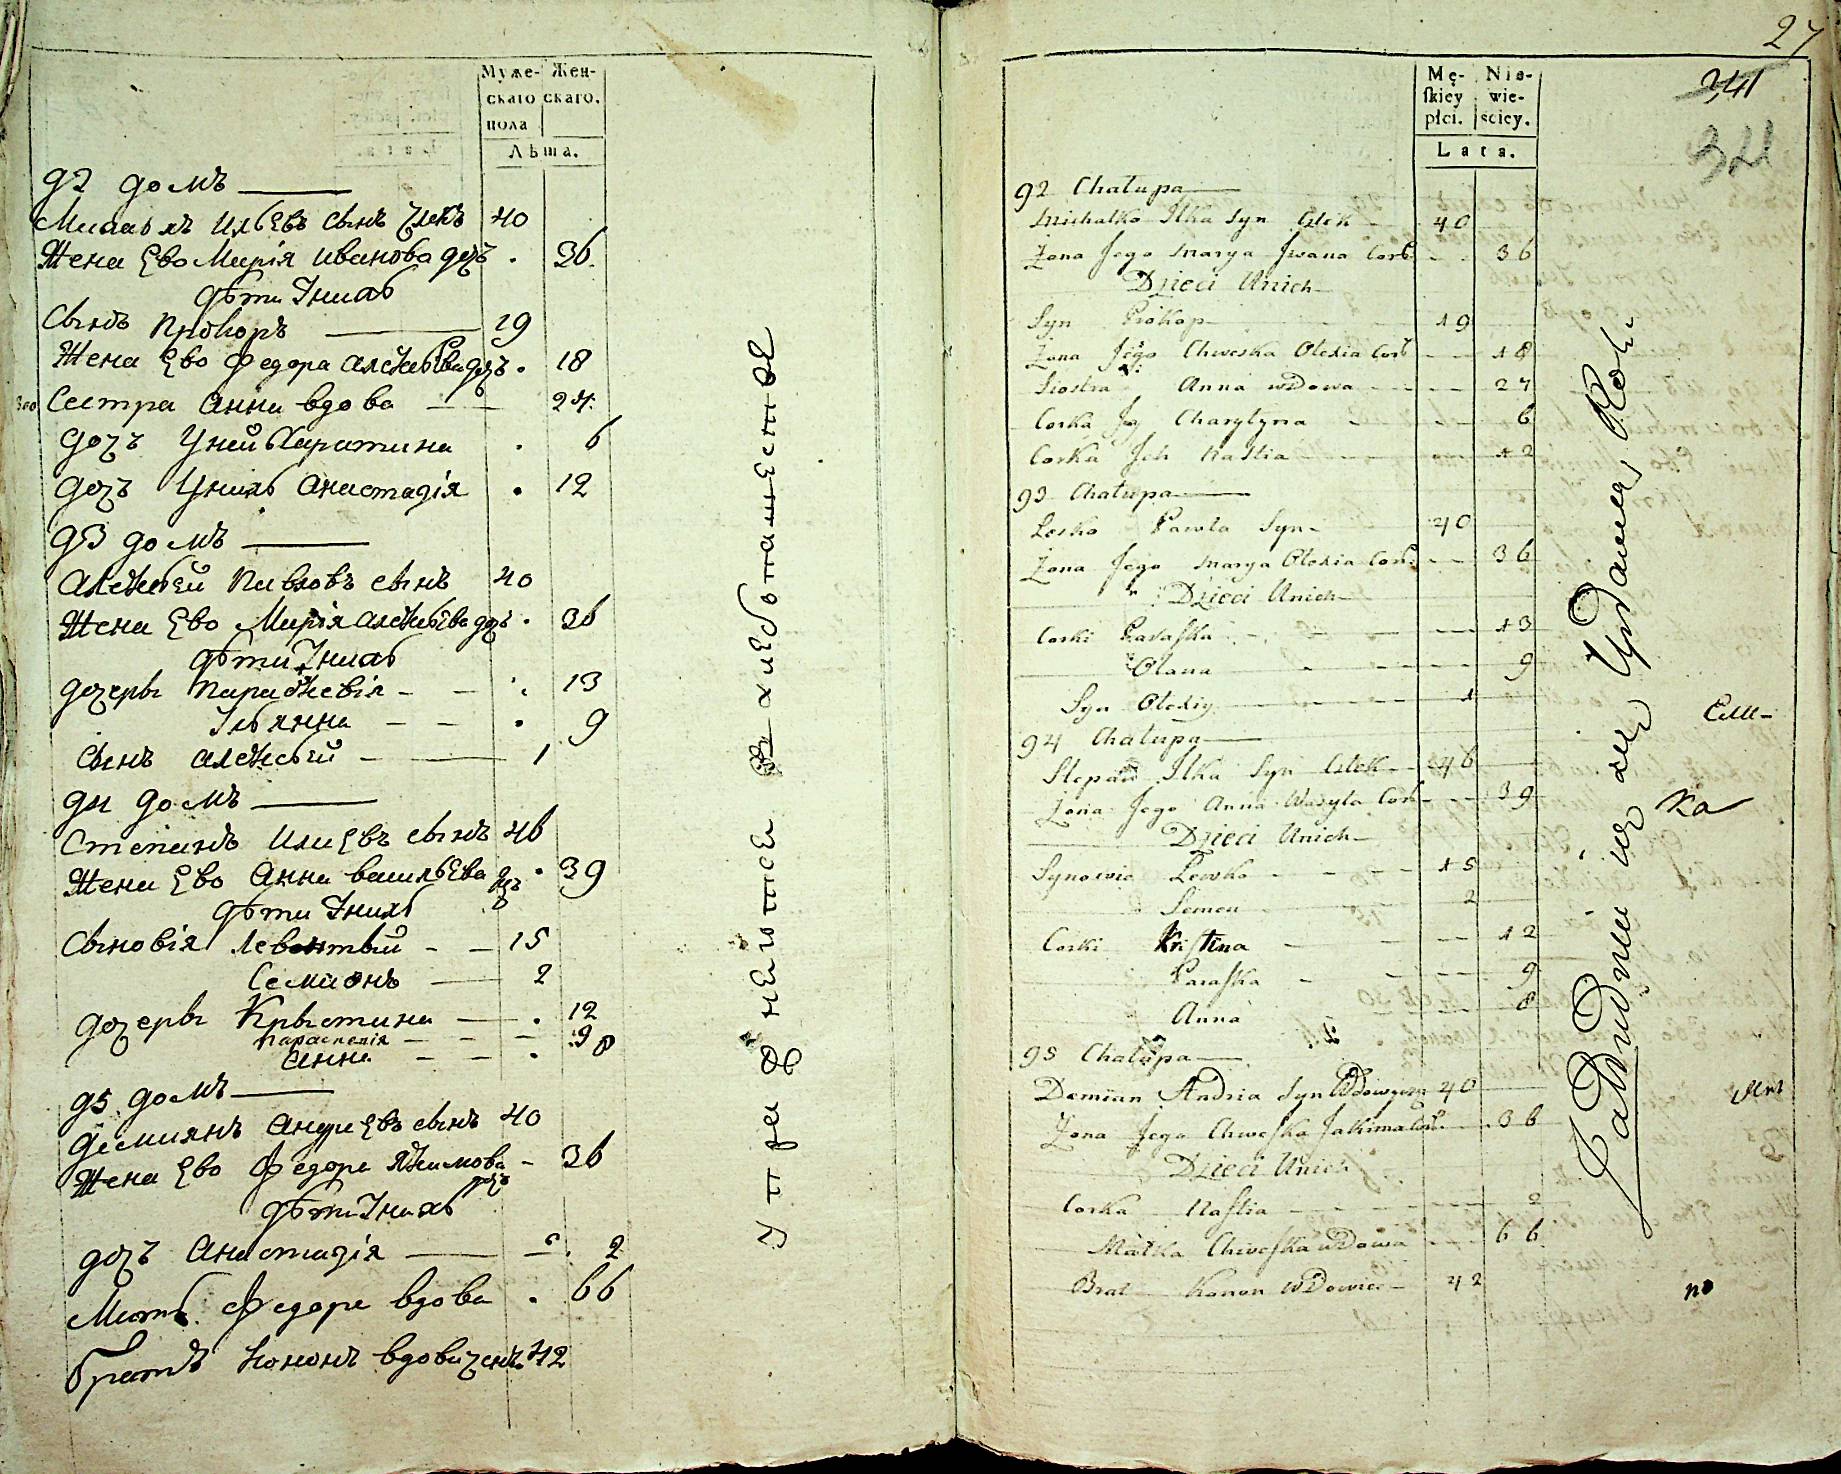 Муже- Жен-
скаго скаго.
пола
Лѣта.
92 домъ
Михайлъ Ильевъ сынъ 40
Жена Ево Марія иванова дочъ 36
Дѣти Унихъ
Сынъ Прокоръ 19
Жена Ево Федора алексѣева дочъ 18
Сестра Анна вдова 27
дочъ Уней Харитина 6
дочъ Унихъ Анастадія 12
93 домъ
Алексѣй Павловъ сынъ 40
Жена Ево Марія алексѣева дочъ 36
дѣти Унихъ
дочеры Параскевія 13
Ульянна 9
Сынъ алексѣй 1
94 домъ
Степанъ Илиевъ сынъ 46
Жена Ево Анна васильева дочъ 39
дѣти Унихъ
Сыновія Левонтый 15
Семионъ 2
дочеры Крыстина 12
параскевія 9
анна 8
95 домъ
Демиянъ Андриевъ сынъ 40
Жена Ево Федора Якимова дочъ 36
дѣти Унихъ
дочъ Анастадія 2
Мать Федора вдова 66
братъ Кононъ вдовиченъ 42
27
341
321
Mę- Nie-
ſkiey wie-
płci. ściey.
Lata.
92 Chałupa
Michałko Ilka Syn 40
Zona Jego Marya Jwana Cork 36
Dzieci Unich
Syn Prokop 19
Zona Jego Chweska Olexia Cork 18
Siostra Anna wdowa 27
Corka Jey Charytyna 6
Corka Jch Nastia 12
93 Chałupa
Lesko Pawła Syn 40
Zona Jego Marya Olexia Cork 36
Dzieci Unich
Corki Paraſka 13
Olana 9
Syn Olexiy 1
94 Chałupa
Stepan Ilka Syn 46
Zona Jego Anna Wasyla Cork 39
Dzieci Unich
Synowie Lewko 15
Semen 2
Corki Kriſtina 12
Paraſka 9
Anna 8
95 Chałupa
Demian Andria Syn 40
Zona Jego Chweſka Jakima Cork 36
Dzieci Unich
Corka Naſtia 2
Matka Chweſka wdowa 66
Brat Konon wdowiec 42
ка
по